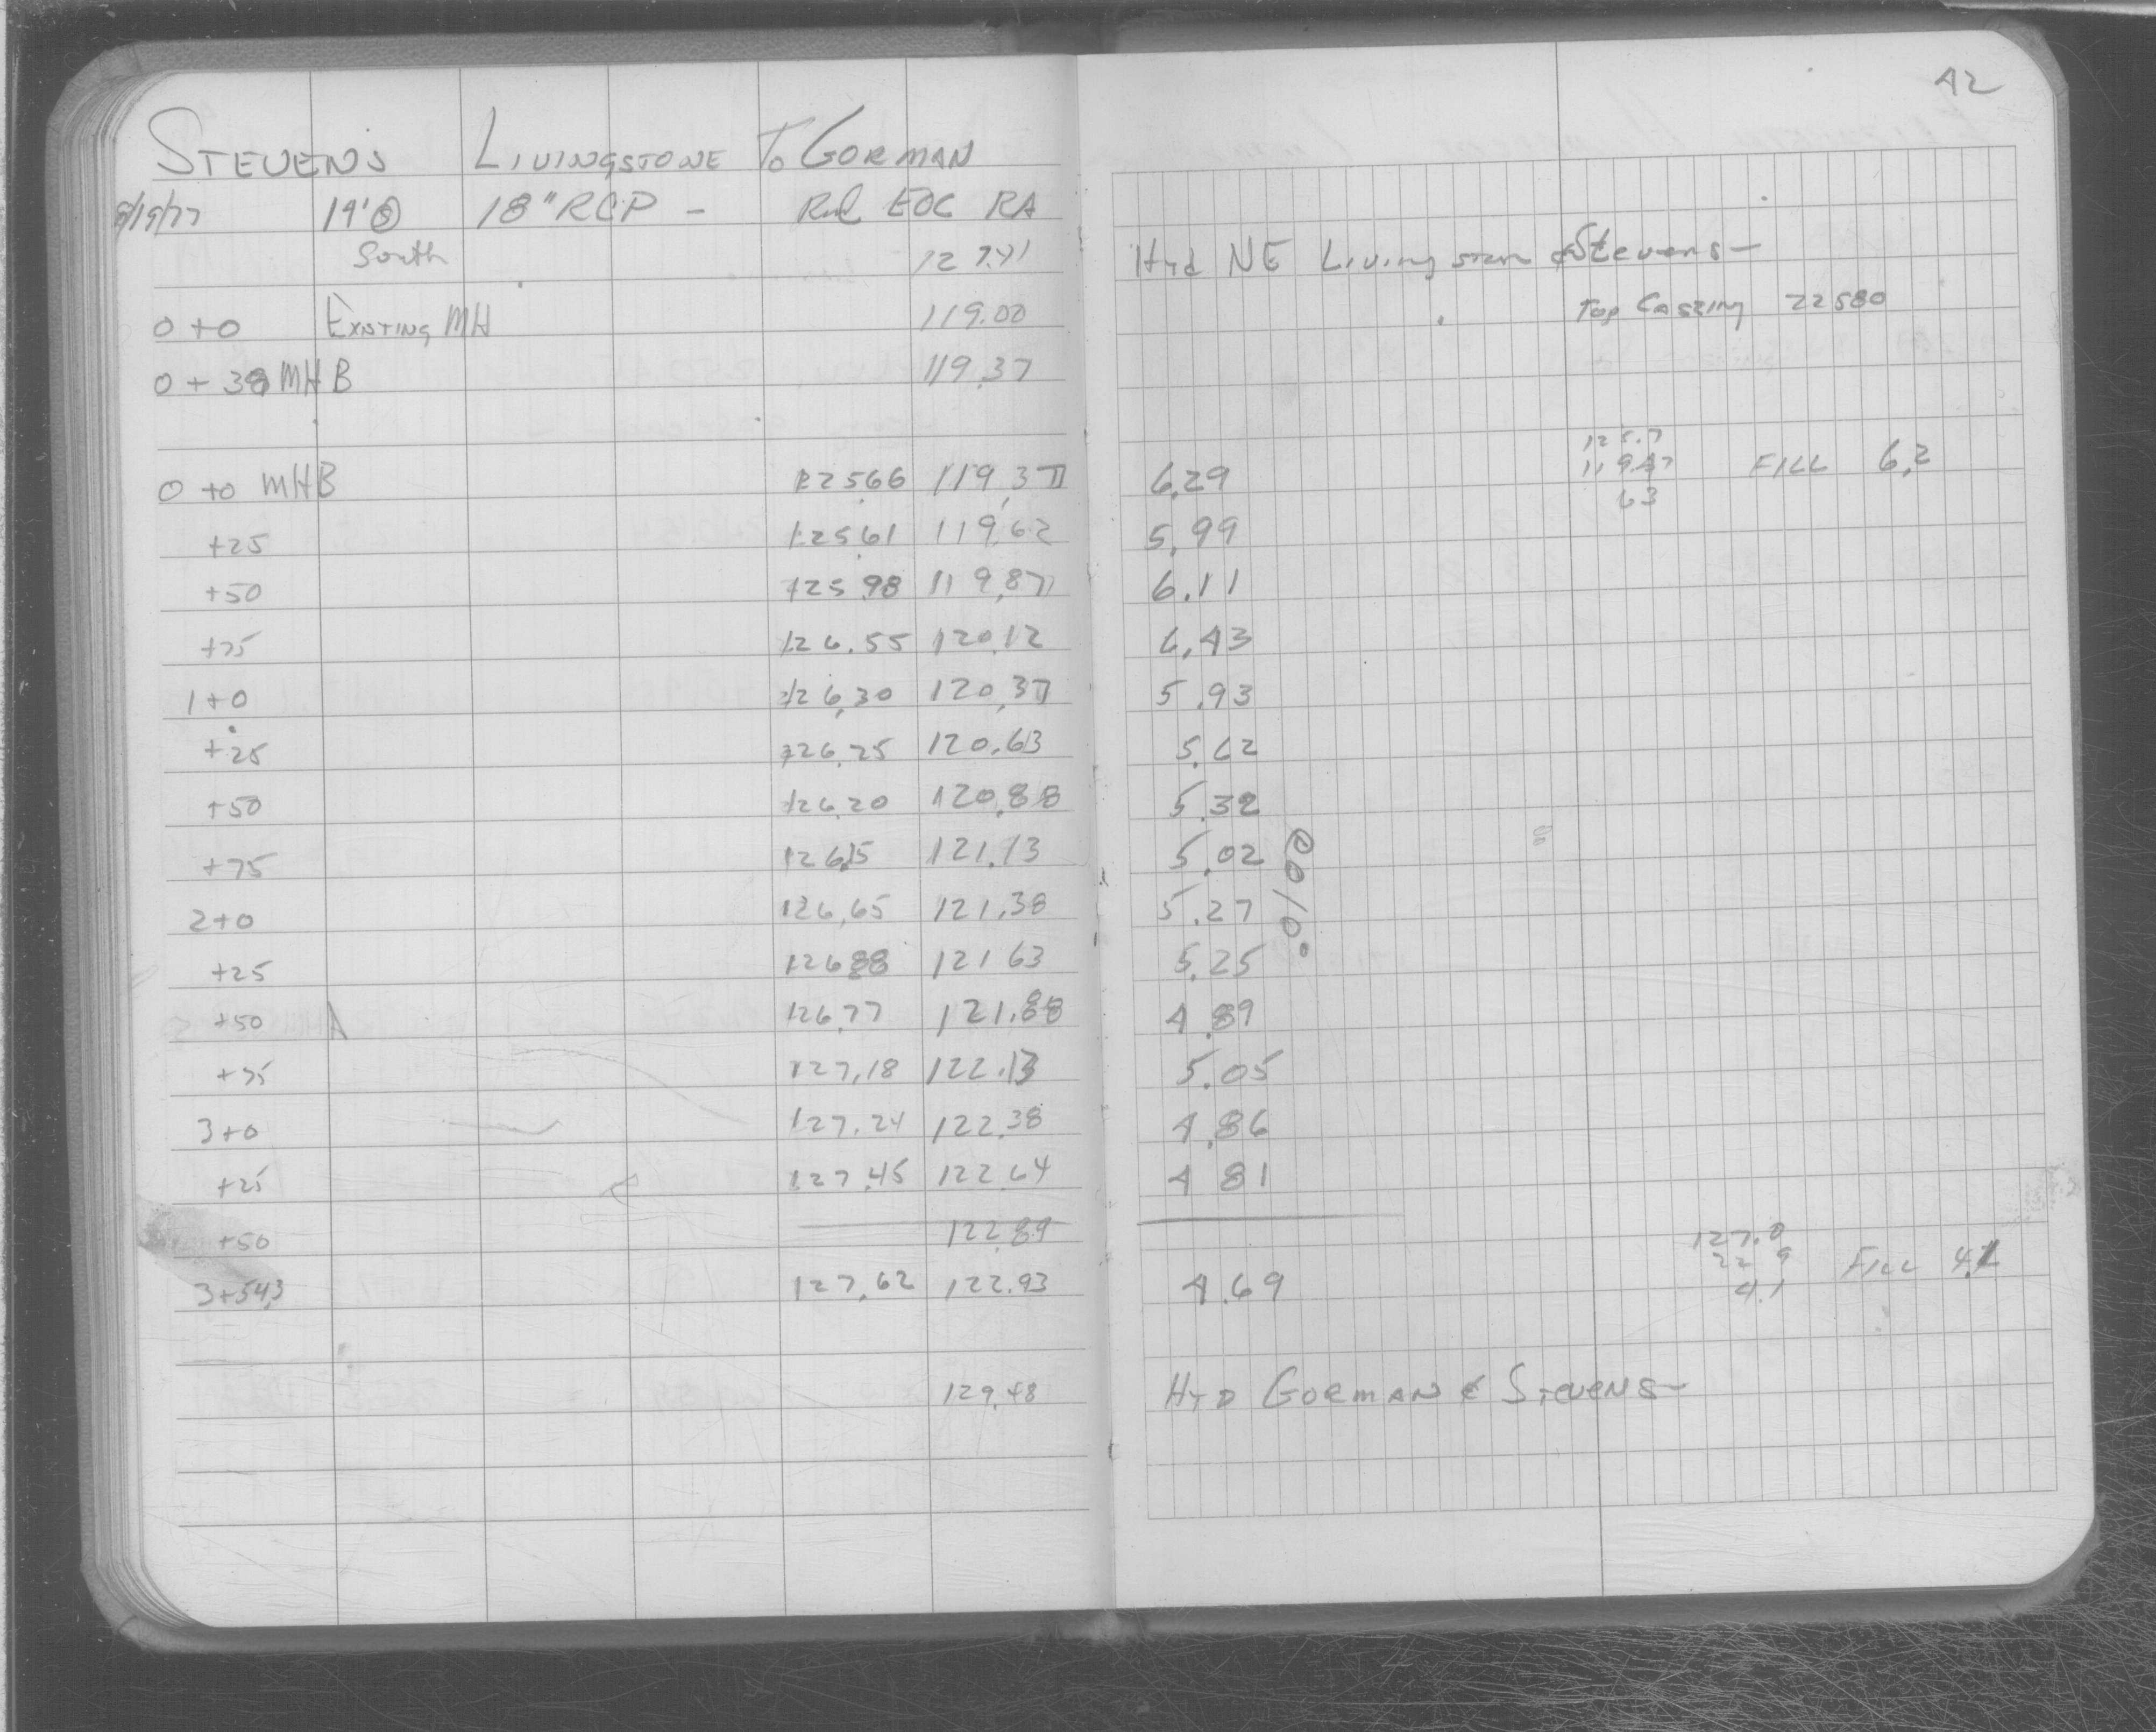 42
STEVENS LIVINGSTONE TO GORMAN
8/19/77 19'⑧ 18" RCP - Rd EOC RA
South 127.41 Hyd NE Livingston & Stevens-
0+0 EXISTING MH 119.00 Top Casting 22580
0+38 MH B 119.37
0+0 MHB 125.66 119.37 6.29 FILL 6.2
125.7
119.47
63
+25 125.61 119.62 5.99
+50 125.98 119.87 6.11
+75 126.55 120.12 6.43
1+0 126.30 120.37 5.93
+25 126.25 120.63 5.62
+50 126.20 120.88 5.32
+75 126.15 121.13 5.02
2+0 126.65 121.38 5.27
+25 126.88 121.63 5.25
+50 126.77 121.88 4.89
+75 127.18 122.13 5.05
3+0 127.24 122.38 4.86
+25 127.45 122.64 4 81
+50 122.89
3+54.3 127.62 122.93 4.69 FILL 4.1
127.0
22 9
4.1
129.48 HYD GORMAN & STEVENS-